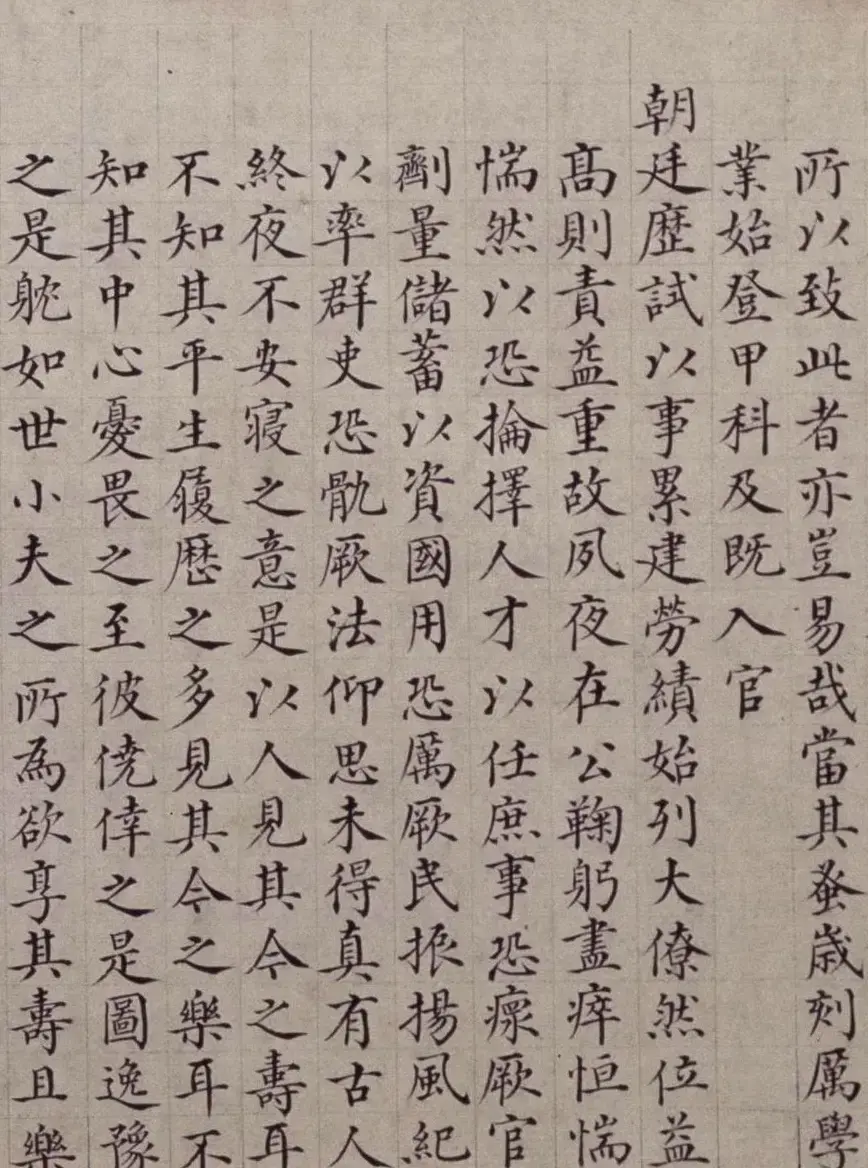 所以致此者亦豈易哉當其蚤歳刻厲學
業始登甲科及既入官
朝廷歷試以事累建勞績始列大僚然位益
髙則責益重故夙夜在公鞠躬盡瘁恒惴
惴然以恐掄擇人才以任庶事恐瘝厥官
劑量儲蓄以資國用恐厲厥民振揚風紀
以率群吏恐骫厥法仰思未得真有古人
終夜不安寢之意是以人見其今之壽耳
不知其平生履歷之多見其今之樂耳不
知其中心憂畏之至彼僥倖之是圖逸豫
之是躭如世小夫之所為欲享其壽且樂